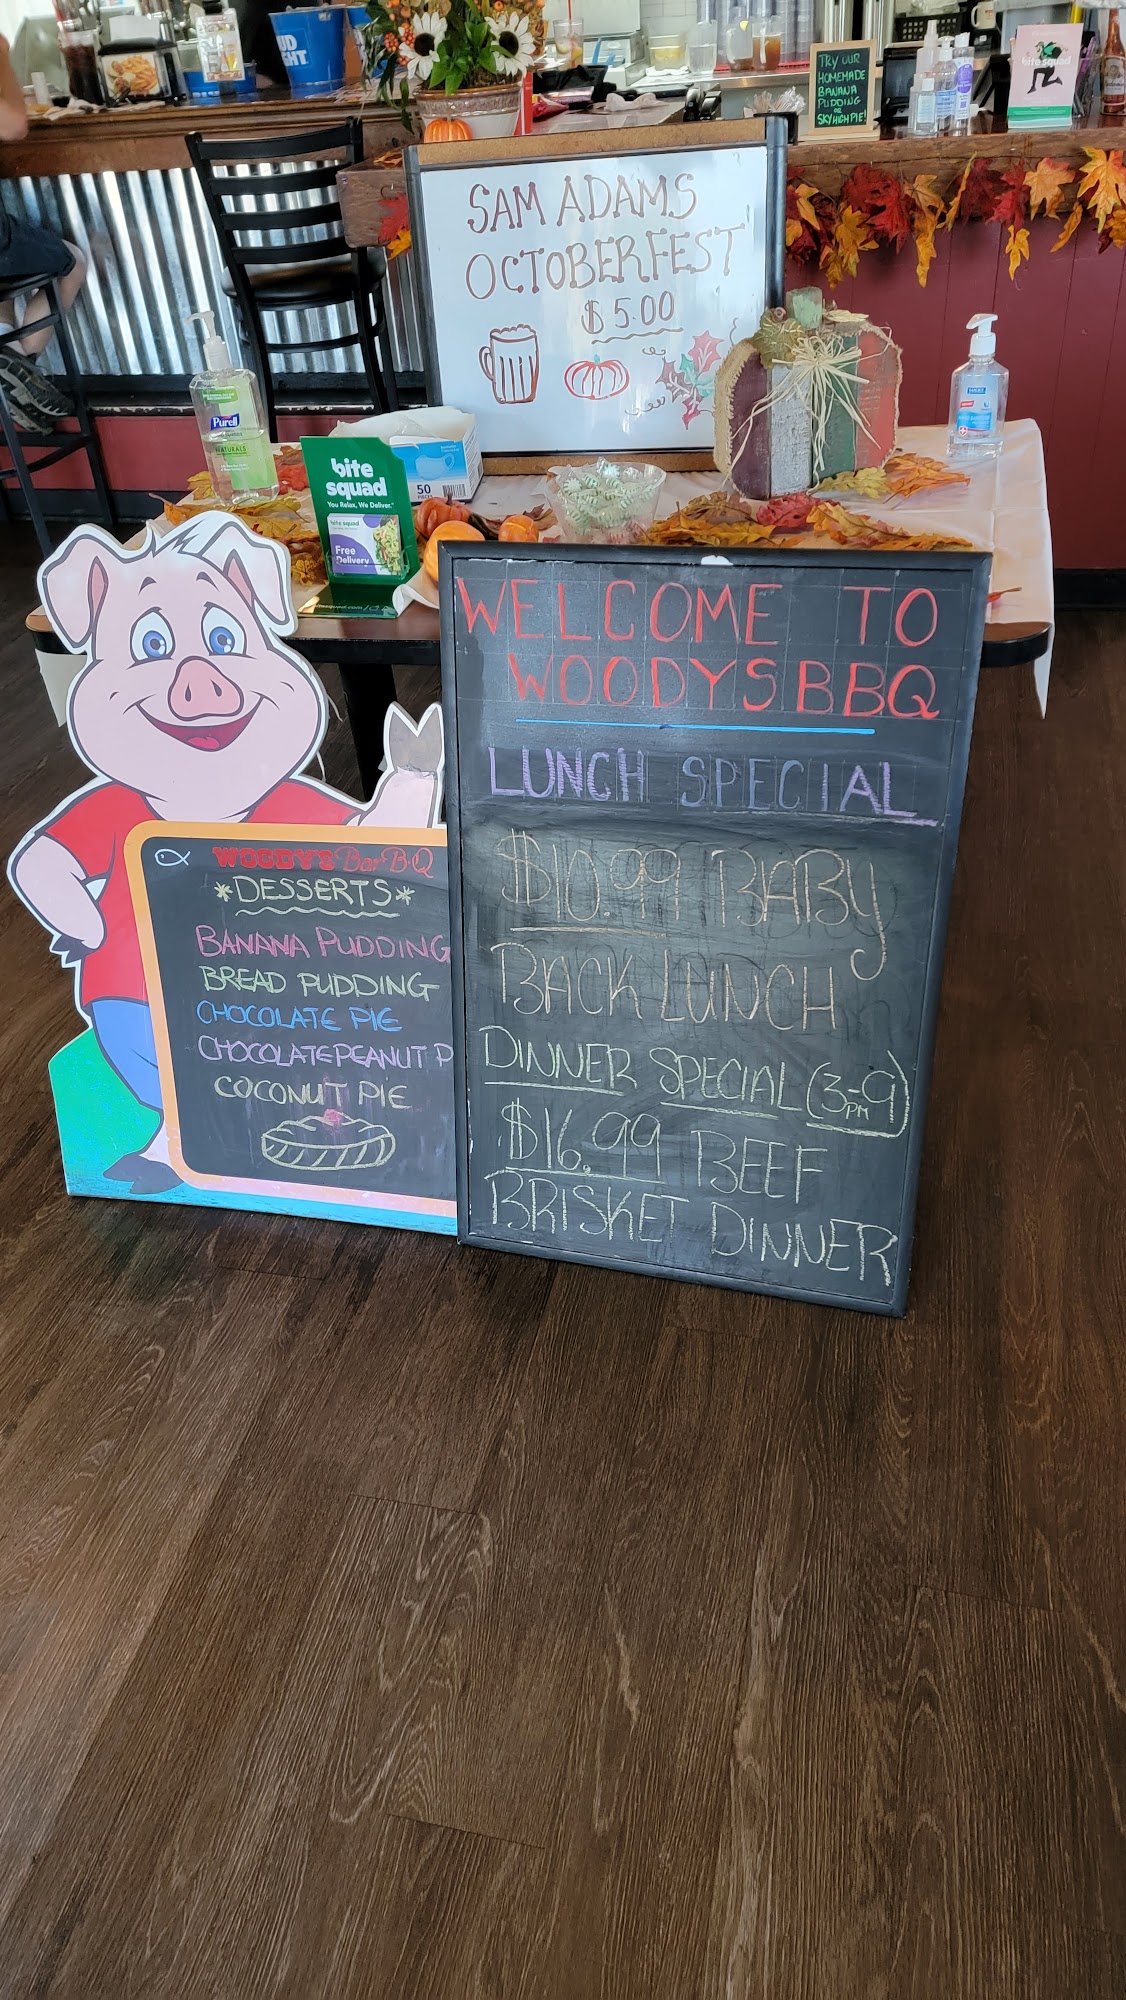 UD
GHT
TRY OUR
HOMEMADE
BANANA
PUDDING
OR
SKYHIGH PIE!
bite squad
SAM ADAMS
OCTOBERFEST
$5.00
Purell
NATURALS
bite
squad
You Relax, We Deliver.
bite squad
Free
Delivery
50
WELCOME TO
WOODYS BBQ
LUNCH SPECIAL
$10.99 BABY
BACK LUNCH
DINNER SPECIAL (3-9)
PM
$16.99 BEEF
BRISKET DINNER
WOODY'S Bar-B-Q
*DESSERTS*
BANANA PUDDING
BREAD PUDDING
CHOCOLATE PIE
CHOCOLATE PEANUT P
COCONUT PIE